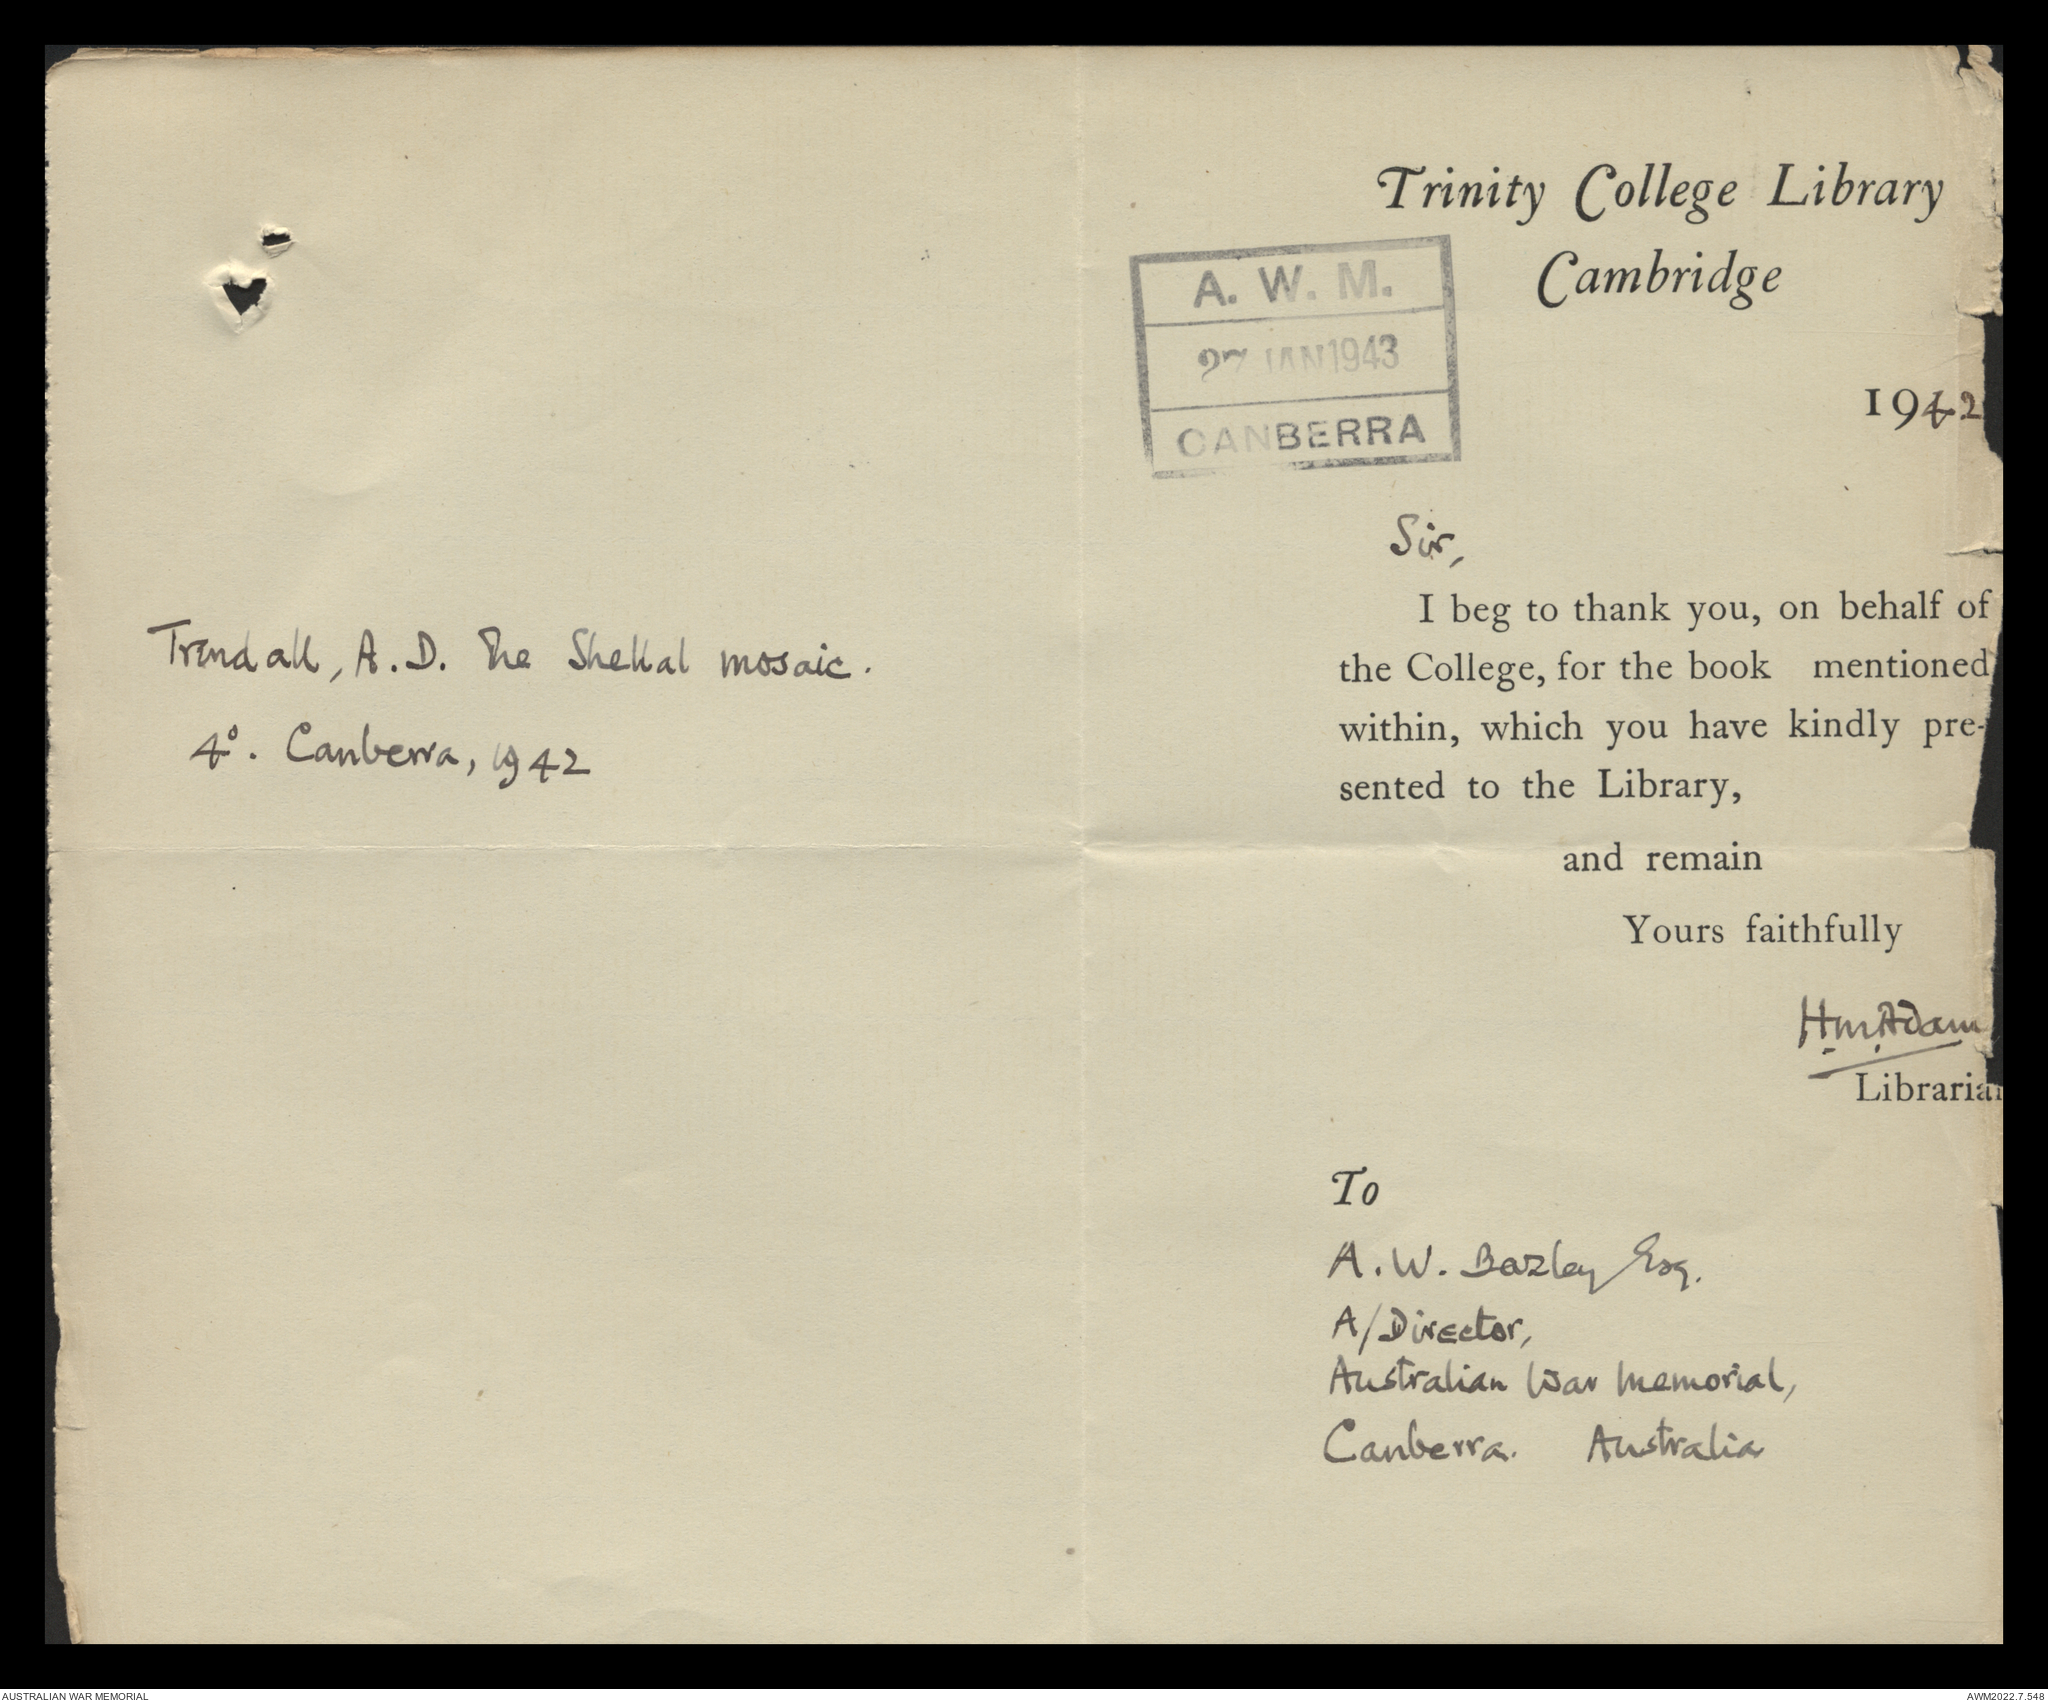 Trendall, A.D. The Shellal mosaic.
4°. Canberra, 1942
Trinity College Library
Cambridge
A. W. M.
27 JAN 1943
CANBERRA
1942
Sir,
I beg to thank you, on behalf of
the College, for the book mentioned
within, which you have kindly pre-
sented to the Library,
and remain
Yours faithfully
H.M.Adam
Librarian
To
A.W. Bazley Esq.
A/Director,
Australian War Memorial,
Canberra. Australia
AUSTRALIAN WAR MEMORIAL
AWM2022.7.548